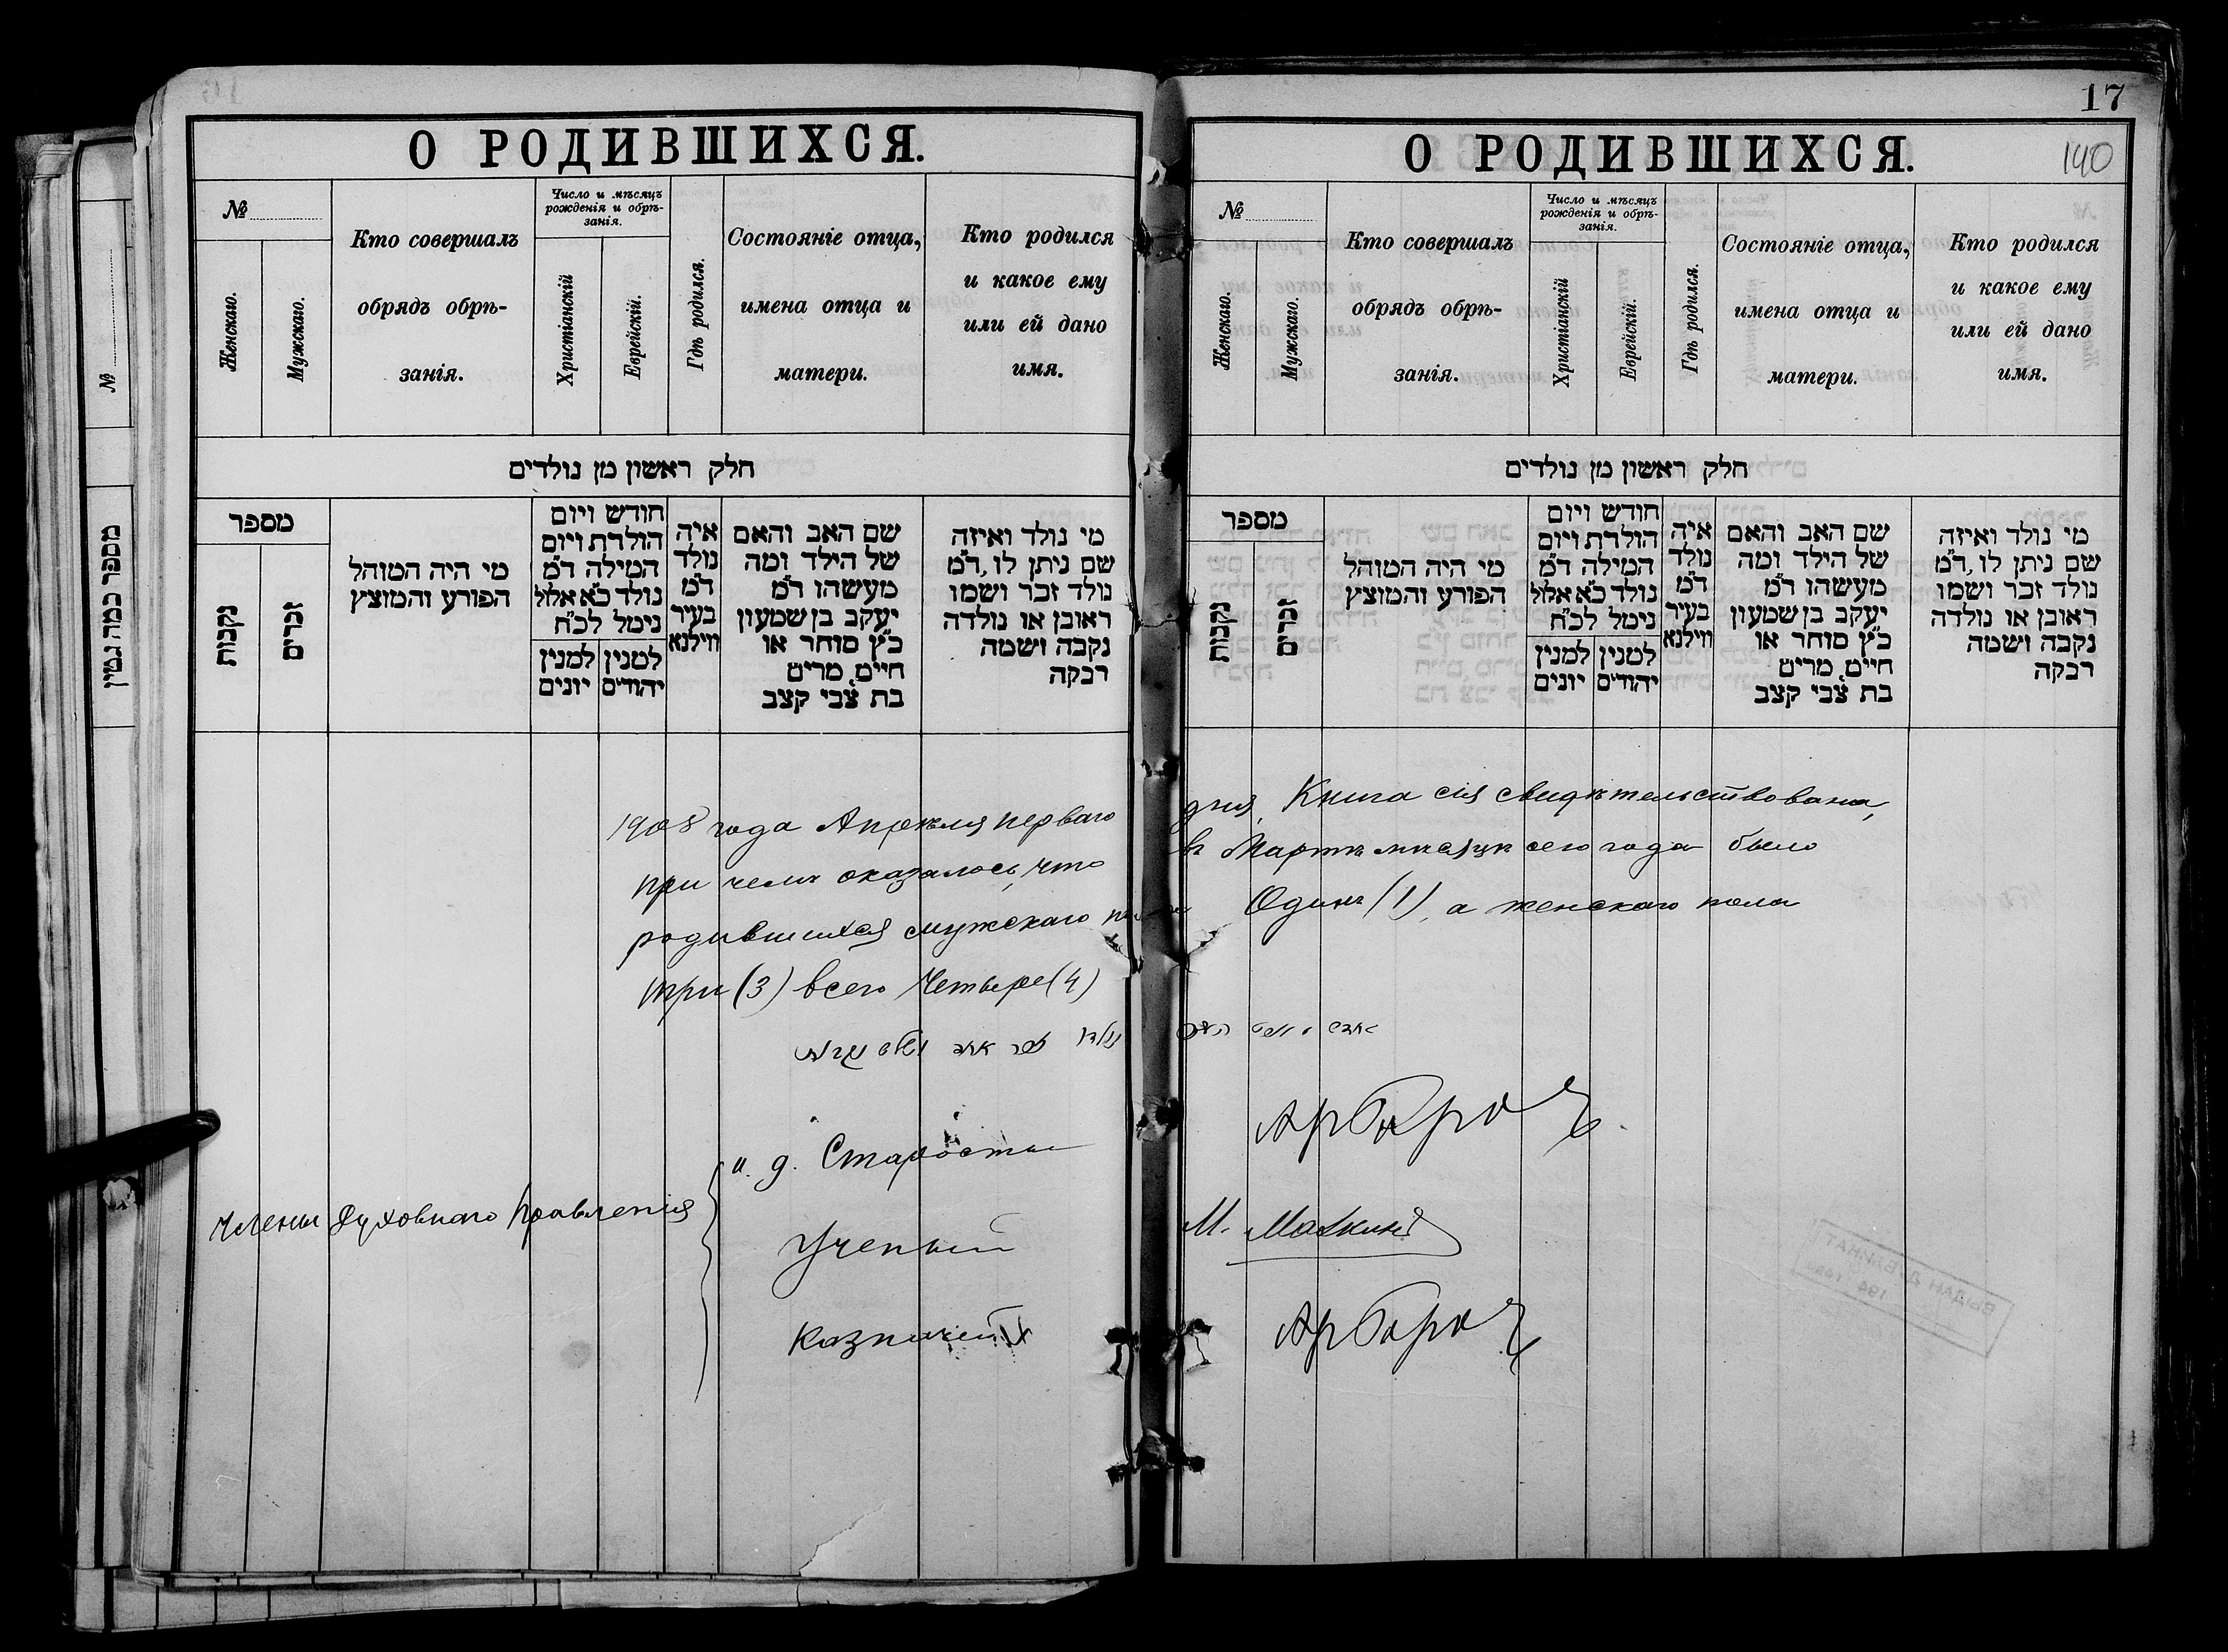 17
140
О РОДИВШИХСЯ.
№
Женскаго.
Мужскаго.
Кто совершалъ
обрядъ обрѣ-
занія.
Число и мѣсяцъ
рожденія и обрѣ-
занія.
Христіанскій
Еврейскій.
Гдѣ родился.
Состояніе отца,
имена отца и
матери.
Кто родился
и какое ему
или ей дано
имя.
חלק ראשון מן נולדים
מספר
נקבות
זכרים
מי היה המוהל
הפורע והמוצץ
חודש ויום
הולדת ויום
המילה ד״מ
נולד כ״א אלול
נימל לכ״ח
למנין יהודים
למנין יונים
איה
נולד
ד״מ
בעיר
ווילנא
שם האב והאם
של הילד ומה
מעשהו ד״מ
יעקב בן שמעון
כ״ץ סוחר או
חיים, מרים
בת צבי קצב
מי נולד ואיזה
שם ניתן לו, ד״מ
נולד זכר ושמו
ראובן או נולדה
נקבה ושמה
רבקה
О РОДИВШИХСЯ.
№
Женскаго.
Мужскаго.
Кто совершалъ
обрядъ обрѣ-
занія.
Число и мѣсяцъ
рожденія и обрѣ-
занія.
Христіанскій
Еврейскій.
Гдѣ родился.
Состояніе отца,
имена отца и
матери.
Кто родился
и какое ему
или ей дано
имя.
חלק ראשון מן נולדים
מספר
נקבות
זכרים
מי היה המוהל
הפורע והמוצץ
חודש ויום
הולדת ויום
המילה ד״מ
נולד כ״א אלול
נימל לכ״ח
למנין יהודים
למנין יונים
איה
נולד
ד״מ
בעיר
ווילנא
שם האב והאם
של הילד ומה
מעשהו ד״מ
יעקב בן שמעון
כ״ץ סוחר או
חיים, מרים
בת צבי קצב
מי נולד ואיזה
שם ניתן לו, ד״מ
נולד זכר ושמו
ראובן או נולדה
נקבה ושמה
רבקה
1908 года Апрѣля перваго дня, Книга сія свидѣтельствована,
при чемъ оказалось, что въ Мартѣ мѣсяцѣ сего года было
родившихся мужскаго Одинъ (1), а женскаго пола
три (3) всего Четыре (4)
Члены Духовнаго Правленія
и. д. Старосты
Ученый М.
Казначей
№
מספר כמה גטין